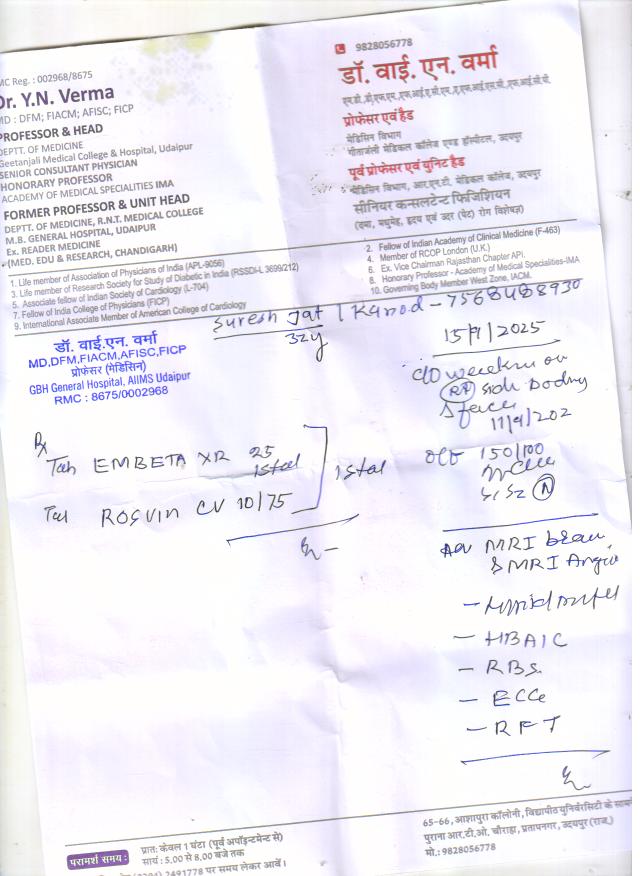 MC Reg. : 002968/8675
Dr. Y.N. Verma
MD : DFM; FIACM; AFISC; FICP
PROFESSOR & HEAD
DEPTT. OF MEDICINE
Geetanjali Medical College & Hospital, Udaipur
SENIOR CONSULTANT PHYSICIAN
HONORARY PROFESSOR
ACADEMY OF MEDICAL SPECIALITIES IMA
FORMER PROFESSOR & UNIT HEAD
DEPTT. OF MEDICINE, R.N.T. MEDICAL COLLEGE
M.B. GENERAL HOSPITAL, UDAIPUR
Ex. READER MEDICINE
(MED. EDU & RESEARCH, CHANDIGARH)
9828056778
डॉ. वाई. एन. वर्मा
प्रोफेसर एवं हैड
मेडिसिन विभाग
गीतांजली मेडिकल कॉलेज एण्ड हॉस्पीटल, उदयपुर
पूर्व प्रोफेसर एवं युनिट हैड
मेडिसिन विभाग, आर.एन.टी. मेडिकल कॉलेज, उदयपुर
सीनियर कन्सलटेन्ट फिजिशियन
(दमा, मधुमेह, हृदय एवं उदर (पेट) रोग विशेषज्ञ)
1. Life member of Association of Physicians of India (APL-9056)
3. Life member of Research Society for Study of Diabetic in India (RSSDI-L 3699/212)
5. Associate fellow of Indian Society of Cardiology (L-704)
7. Fellow of India College of Physicians (FICP)
9. International Associate Member of American College of Cardiology
2. Fellow of Indian Academy of Clinical Medicine (F-463)
4. Member of RCOP London (U.K.)
6. Ex. Vice Chairman Rajasthan Chapter API.
8. Honorary Professor - Academy of Medical Specialities-IMA
10. Governing Body Member West Zone, IACM.
Suresh Jat / Kanod - 7568488930
32y
डॉ. वाई. एन. वर्मा
MD,DFM,FIACM,AFISC,FICP
प्रोफेसर (मेडिसिन)
GBH General Hospital, AIIMS Udaipur
RMC : 8675/0002968
15/9/2025
c/o weakness on
Rt side body
& face
11/9/202
Rx
Tab EMBETA XR 25
Tab ROSVIN CV 10/75
O/E 150/100
S1S2 N
Adv MRI brain
& MRI Angio
- HBAIC
- RBS
- ECG
- RFT
परामर्श समय :
प्रातः केवल 1 घंटा (पूर्व अपॉइन्टमेन्ट से)
सायं : 5.00 से 8.00 बजे तक
2491778 पर समय लेकर आवें।
65-66, आशापुरा कॉलोनी, विद्यापीठ युनिवर्सिटी के सामने
पुराना आर.टी.ओ. चौराहा, प्रतापनगर, उदयपुर (राज.)
मो.: 9828056778